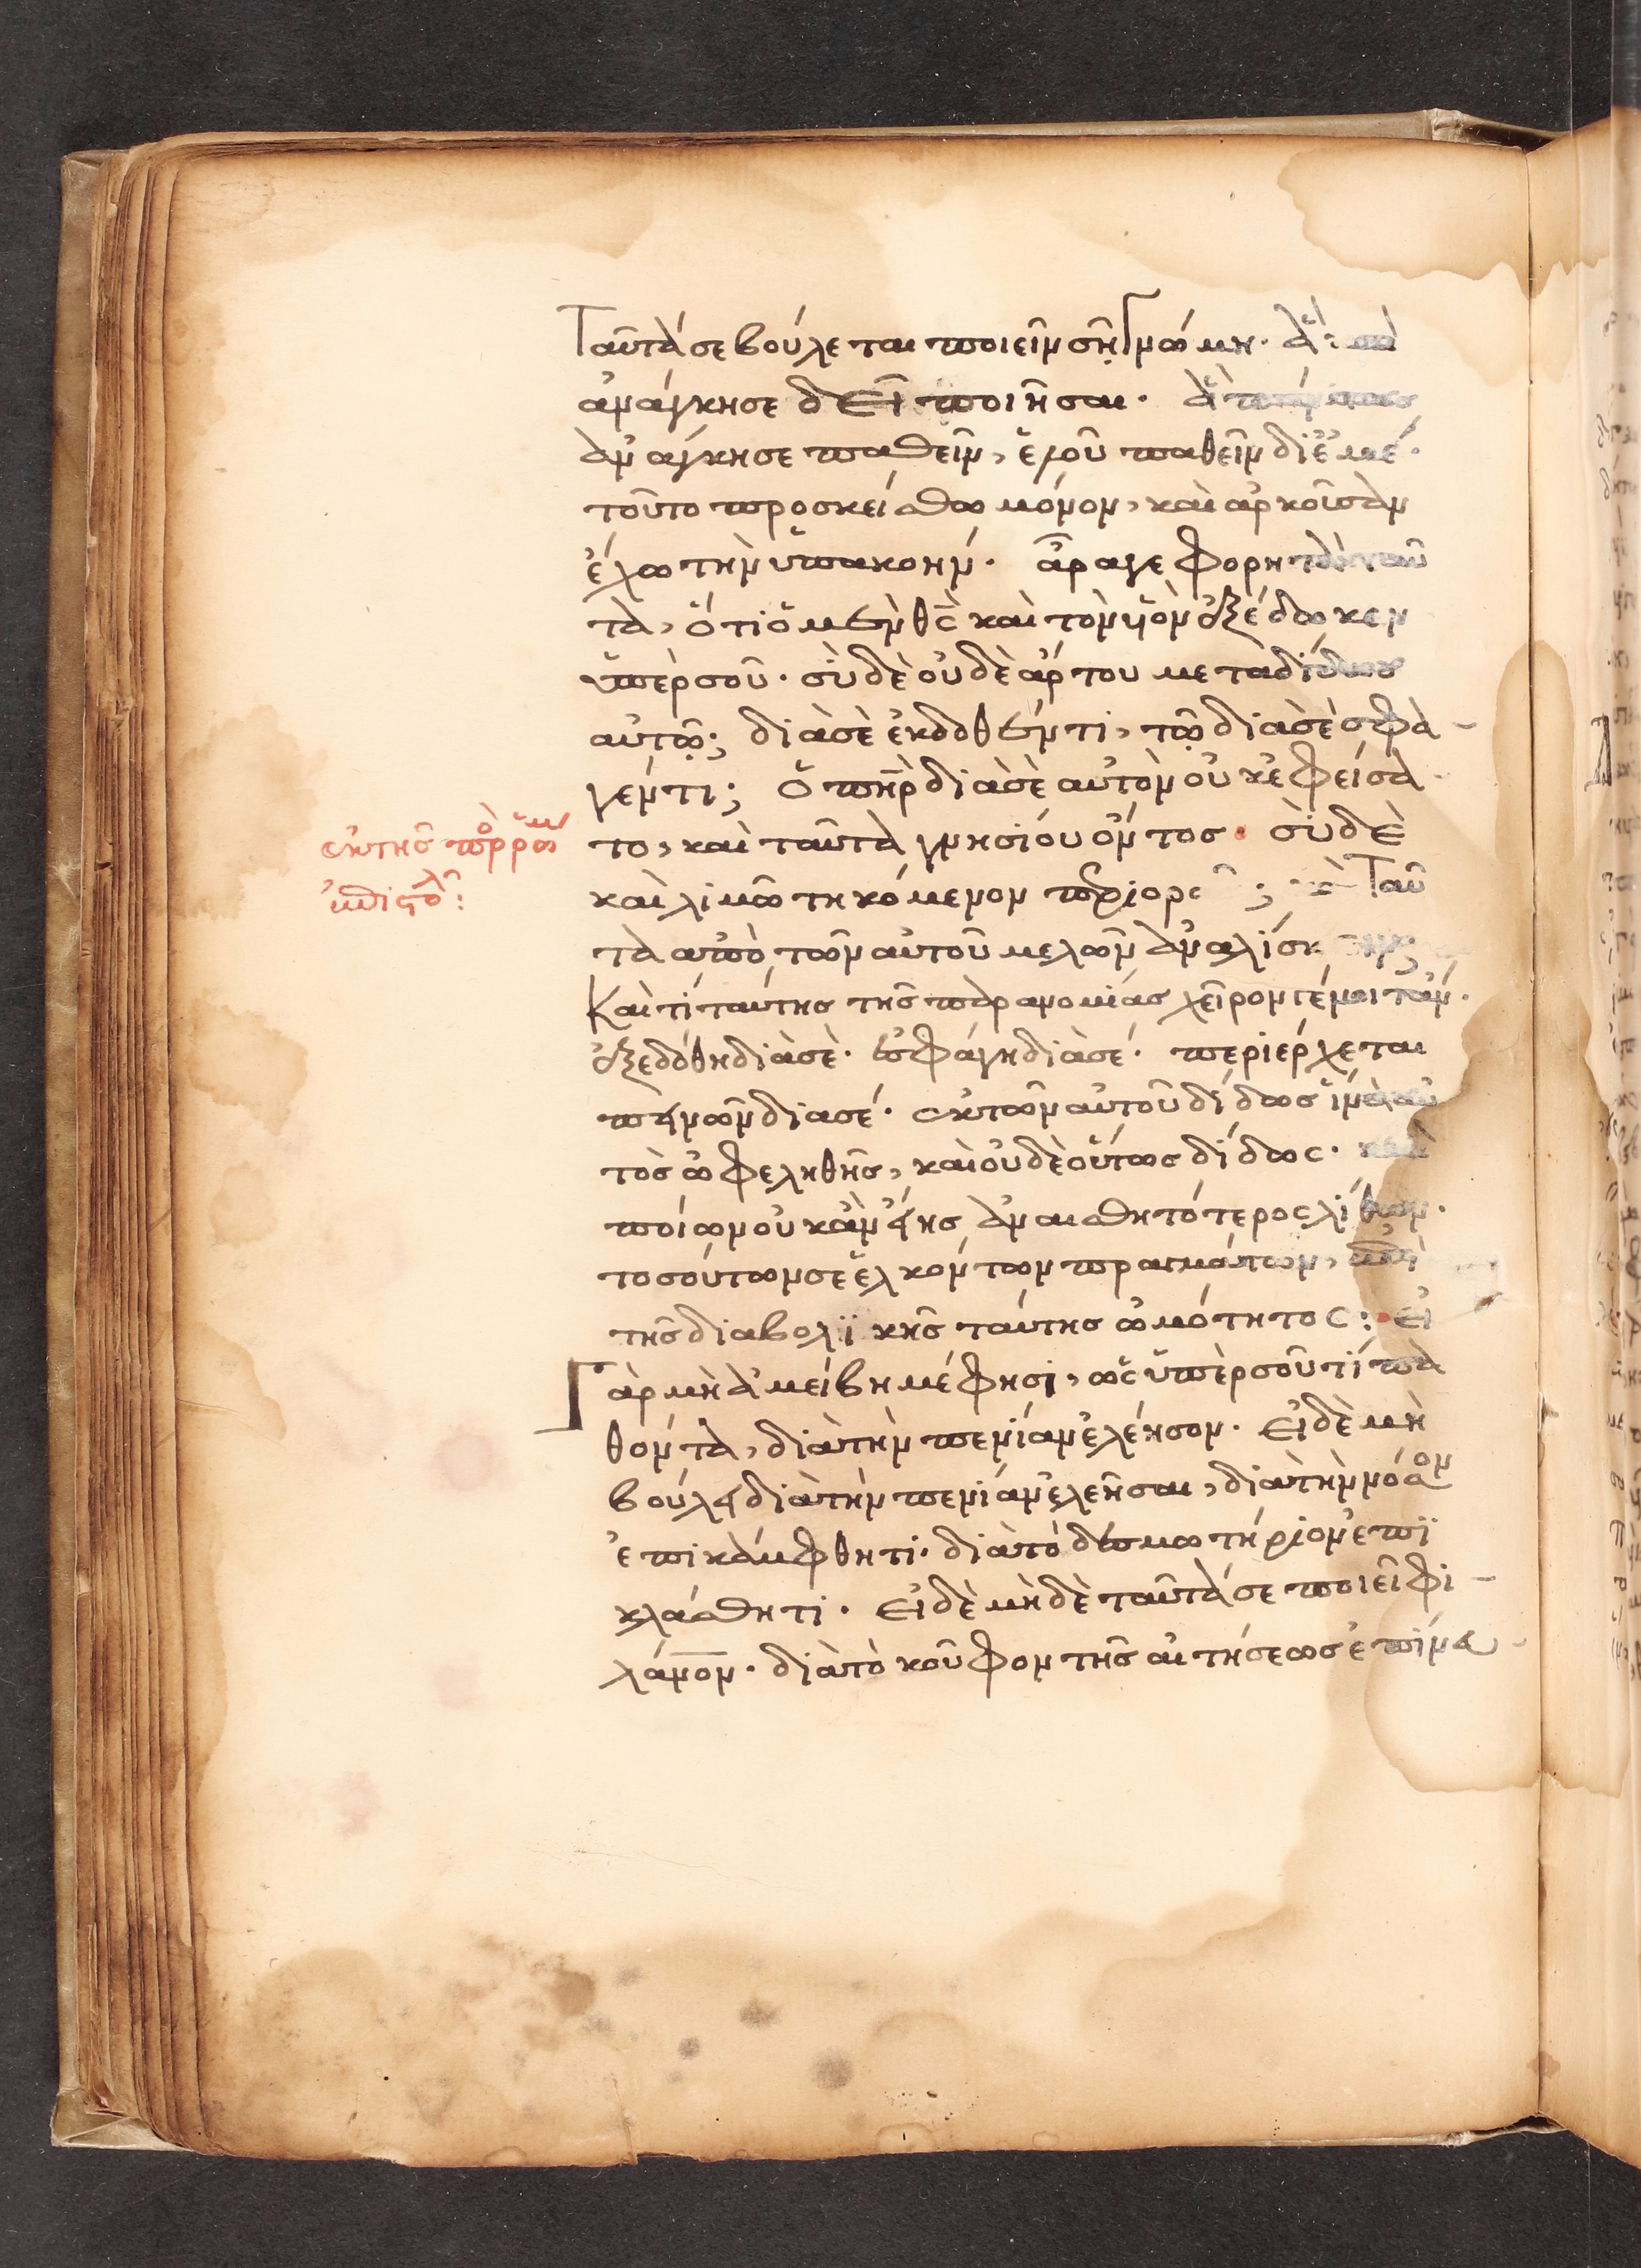 Ταῦτά σε βούλεται ποιεῖν σῆ γνώμη. ἅ
ἀνάγκησε δεῖ ποιῆσαι. ἃ
ἀνάγκησε παθεῖν, ἑλοῦ παθεῖν δι ἐμέ.
τοῦτο προσκείσθω μόνον, καὶ ἀρκοῦσαν
ἔχω τὴν ὑπακοήν. ἆραγε φορητὰ ταῦ
τα, ὅτι ὁ μὲν θς καὶ τὸν υἱὸν ἐξέδωκεν
ὑπὲρ σοῦ. σὺ δὲ οὐδὲ ἄρτου μεταδίδως
αὐτῶ; διὰ σὲ ἐκδοθέντι, τῶ διὰ σὲ σφα-
γέντι; ὁ πηρ διὰ σὲ αὐτὸν οὐκ ἐφείσα
το, καὶ ταῦτα γνησίου ὄντος. σὺ δὲ
ἐκ τῆς πρὸς ῥωμ
ἐπιστολ:
καὶ λιμῶ τηκόμενον περιορ ; Ταῦ
τα ἀπὸ τῶν αὐτοῦ μελῶν ἀναλίσκ
Καὶ τί ταύτης τῆς παρανομίας χεῖρον γένοιτ ἄν.
ἐξεδόθη διὰ σὲ. ἐσφάγη διὰ σέ. περιέρχεται
πεινῶν διὰ σέ. ἐκ τῶν αὐτοῦ δίδως ἵνα αὐ
τὸς ὠφεληθῆς, καὶ οὐδὲ οὕτως δίδως. καὶ
ποίων οὐκ ἂν εἴης ἀναισθητότερος λίθων.
τοσούτων σε ἑλκόντων πραγμάτων, ἐπὶ
τῆς διαβολϊκῆς ταύτης ὠμότητος: εἰ
γὰρ μὴ ἀμείβη μέ φησι, ὡς ὑπὲρ σοῦ τί πα
θόντα, διὰ τὴν πενίαν ἐλέησον. εἰ δὲ μὴ
βούλει διὰ τὴν πενίαν ἐλεῆσαι, διὰ τὴν νόσον
ἐπικάμφθητι. διὰ τὸ δεσμωτήριον ἐπϊ
κλάσθητι. εἰ δὲ μὴ δὲ ταῦτά σε ποιεῖ φι-
λάνον. διὰ τὸ κοῦφον τῆς αἰτήσεως ἐπίνευ-